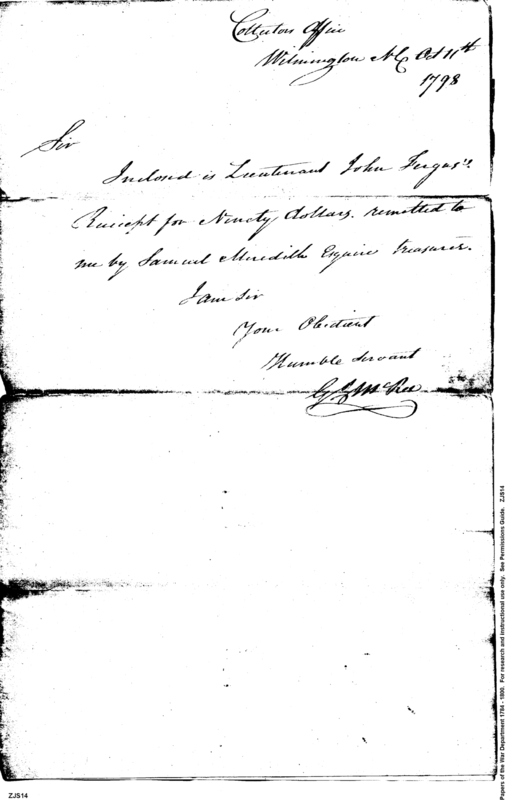 Collectors Office
Wilmington NC Oct 11th
1798
Sir
Inclosed is Lieutenant John Fergus's
Receipt for Ninety dollars. remitted to
me by Samuel Meredith Esquire Treasurer.
I am Sir
Your Obedient
Humble Servant
McRee
Papers of the War Department 1784 - 1800. For research and instructional use only. See Permissions Guide. ZJS14
ZJS14